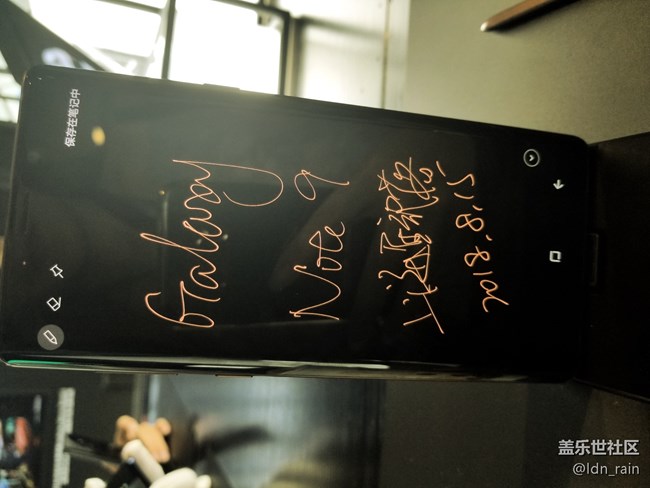 保存在笔记中
Galaxy
Note 9
上海首发
2018.8.15
盖乐世社区
@ldn_rain